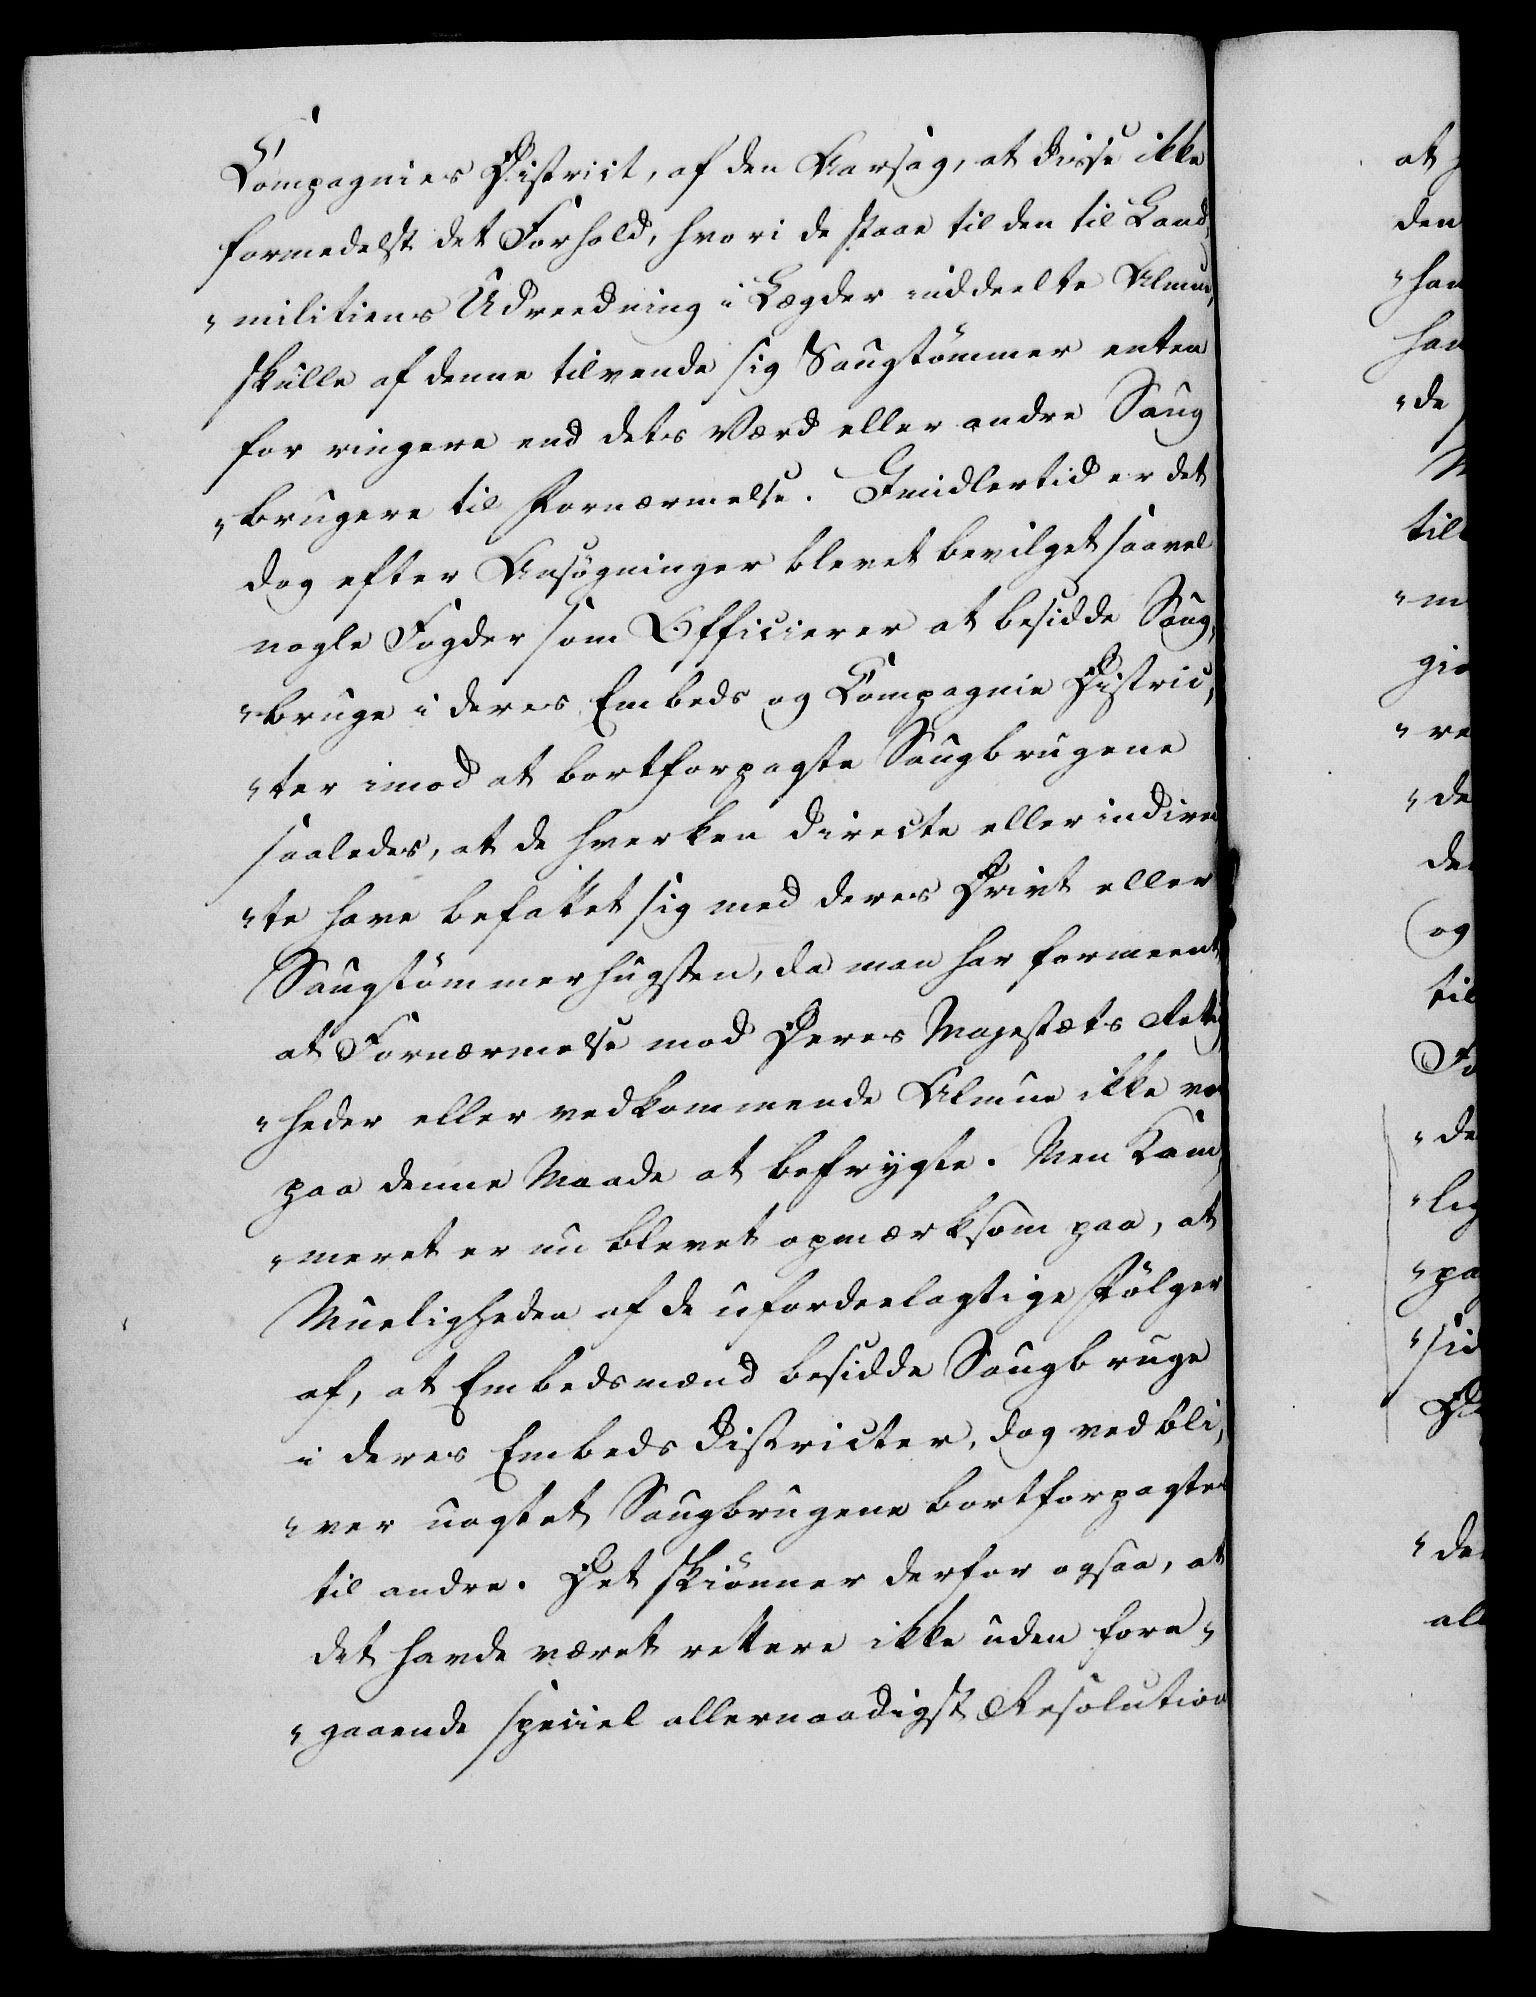 Compagnies District, af den Aarsag, at disse ikke
formedelst det Forhold, hvori de staae til den til Land,
"militiens Udreedning i Lægder inddeelte Almue,
skulle af denne tilvende sig Saugtømmer enten
for ringere end dets Værd eller andre Saug
"brugere til Fornærmelse. Imidlertid er det
dog efter Ansøgninger blevet bevilget saavel
nogle Fogder som Officierer at besidde Saug,
"bruge i deres Embeds og Compagnie Distric,
"ter imod at bortforpagte Saugbrugene
saaledes, at de hverken directe eller indirec
"te have befattet sig med deres Drivt eller
Saugtømmerhugsten, da man har formeent,
at Fornærmelse mod Deres Majestæts Rettig
"heder eller vedkommende Almue ikke var
paa denne Maade at befrygte. Men Kam,
"meret er nu blevet opmærksom paa, at
Mueligheden af de ufordeelagtige Følger
af, at Embedsmænd besidde Saugbruge
i deres Embeds Districter, dog vedbli,
"ver uagtet Saugbrugene bortforpagtes
til andre. Det skiønner derfor ogsaa, at
det havde været rettere ikke uden fore,
"gaaende speciel allernaadigst Resolution
at
den
"han
han
"de
till
"m
gio
"re
"de
den
og
til
Fo
"de
"lig
"pag
"sid
"den
all